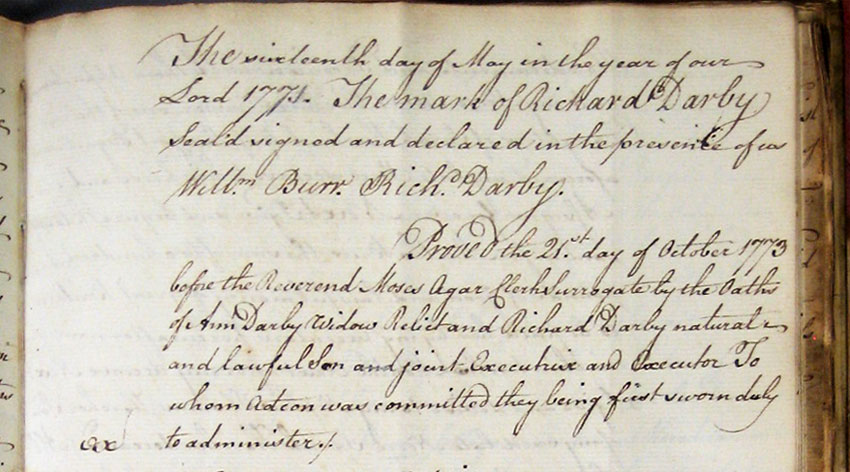 The sixteenth day of May in the year of our
Lord 1771. The mark of Richard Darby
Seal'd signed and declared in the presence of us
Will.m Burr. Rich.d Darby.
Proved the 21.st day of October 1773
before the Reverend Moses Agar Clerk Surrogate by the Oaths
of Ann Darby Widow Relict and Richard Darby natural
and lawful Son and joint Executrix and Executor To
whom Adcon was committed they being first sworn duly
ex to administer.